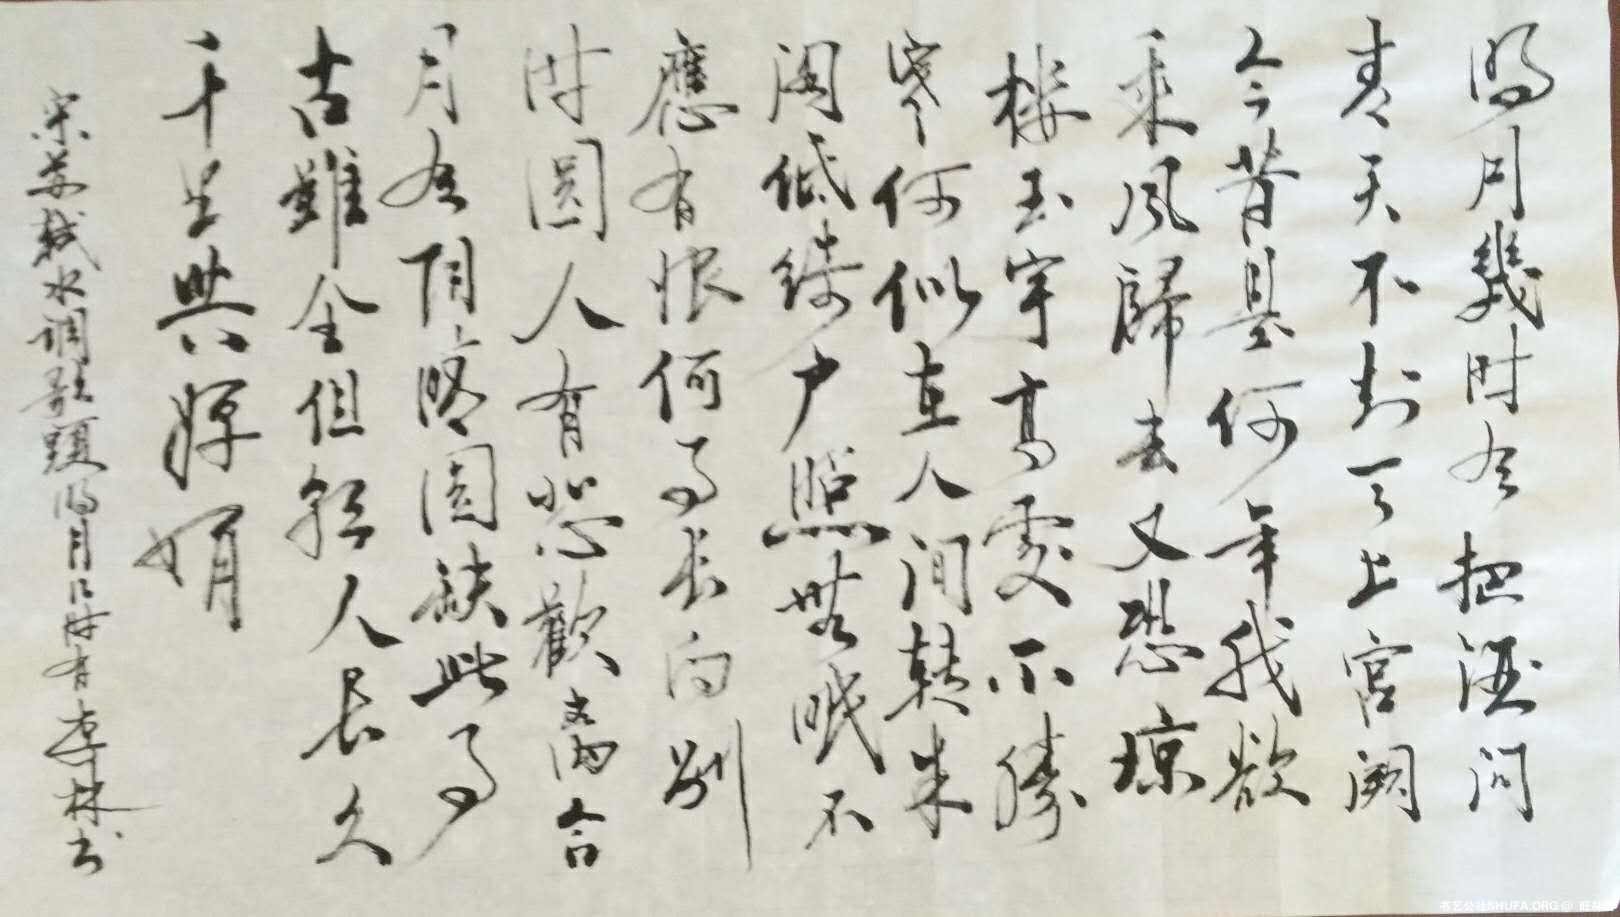 明月幾时有把酒問
青天不知天上宮闕
今昔是何年我欲
乘風歸去又恐琼
樓玉宇高處不勝
寒何似在人间转朱
閣低綺户照無眠不
應有恨何事長向別
時圓人有悲歡離合
月有阴晴圓缺此事
古難全但願人長久
千里共嬋娟
宋苏軾水调歌頭明月几时有李林书
书艺公社SHUFA.ORG @ 旺林